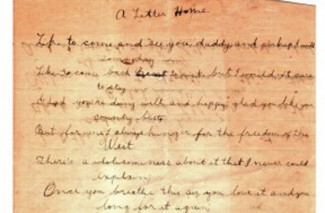 A Letter Home
Like to come and see you, daddy, and perhaps I will
someday
Like to come back but I would not care
to stay
Glad you're doing well and happy glad you like your
county best
But for me I always hunger for the freedom of the
West
There's a wholesomeness about it that I never could
explain
Once you breathe this air you love it and you
long for it again